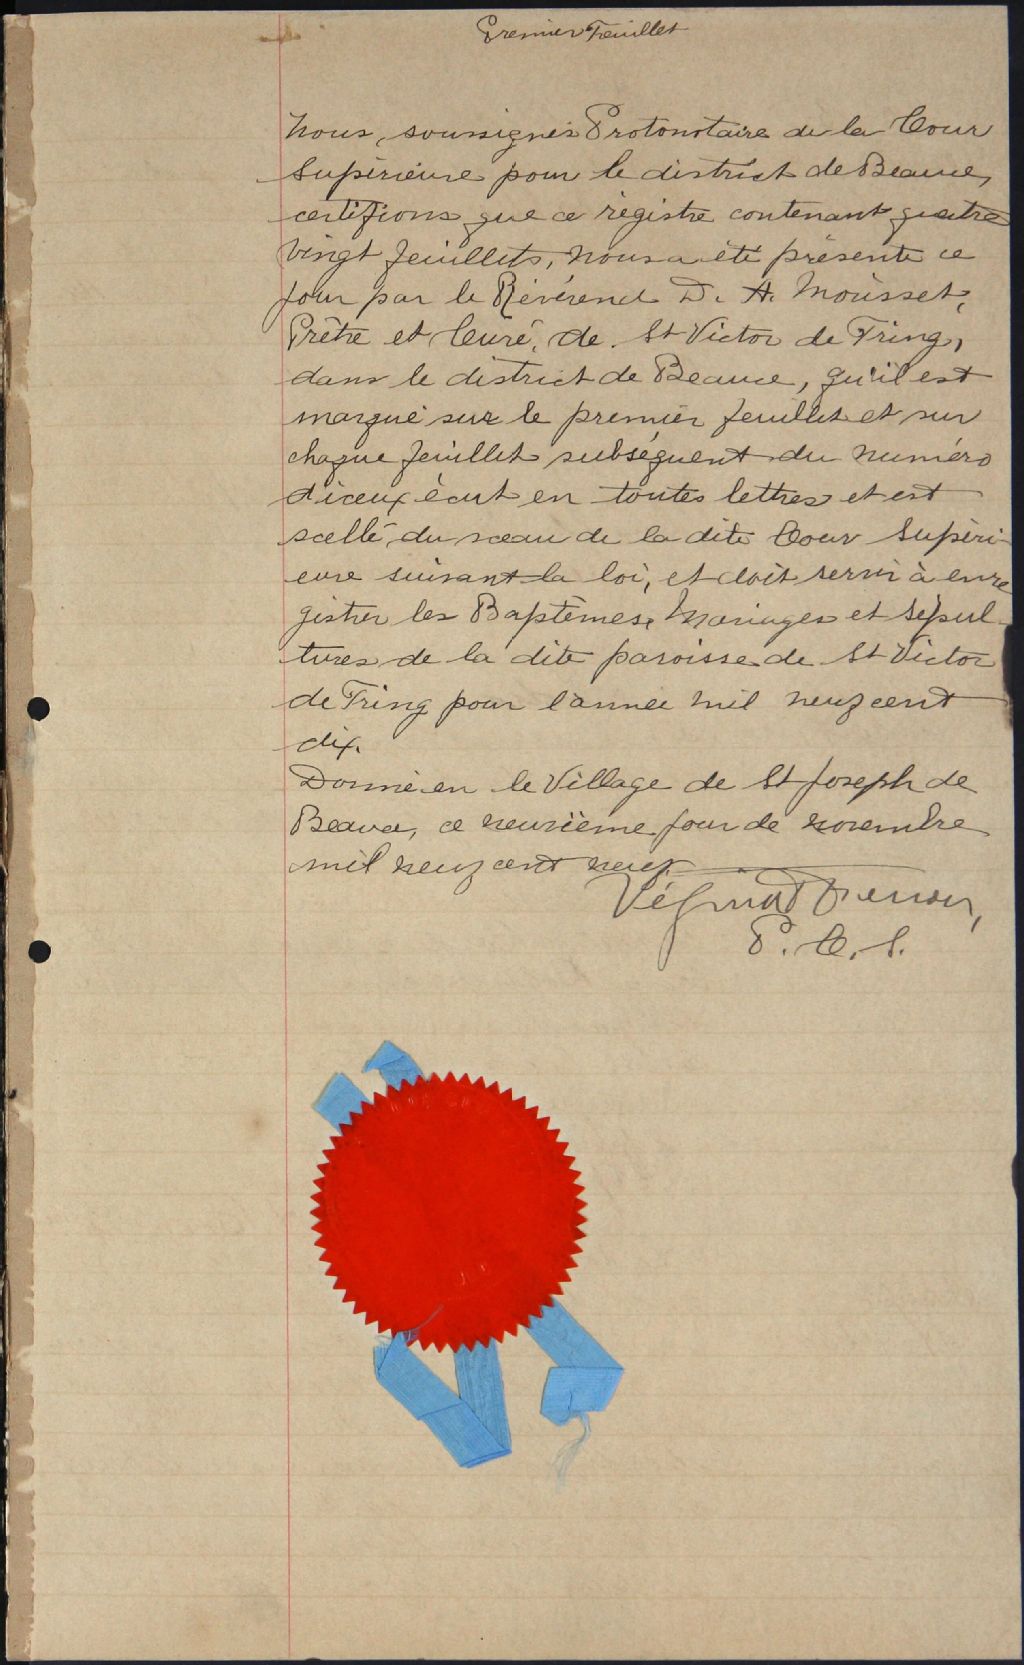 Premier Feuillet
Nous, soussignés Protonotaire de la Cour
Supérieure pour le district de Beauce,
certifions que ce régistre contenant quatre
vingt feuillets, nous a été présenté ce
jour par le Révérend D. A. Mousset,
Prêtre et Curé, de St Victor de Tring,
dans le district de Beauce, qu'il est
marqué sur le premier feuillet et sur
chaque feuillet subséquent du numéro
d'iceux écrit en toutes lettres et est
scellé du sceau de la dite Cour Supéri-
eure suivant la loi, et doit servir à enre
gistrer les Baptêmes, Mariages et Sépul-
tures de la dite paroisse de St Victor
de Tring pour l'année mil neuf cent
dix.
Donné en le Village de St Joseph de
Beauce, ce neuvième jour de novembre
mil neuf cent neuf.
P. C. S.